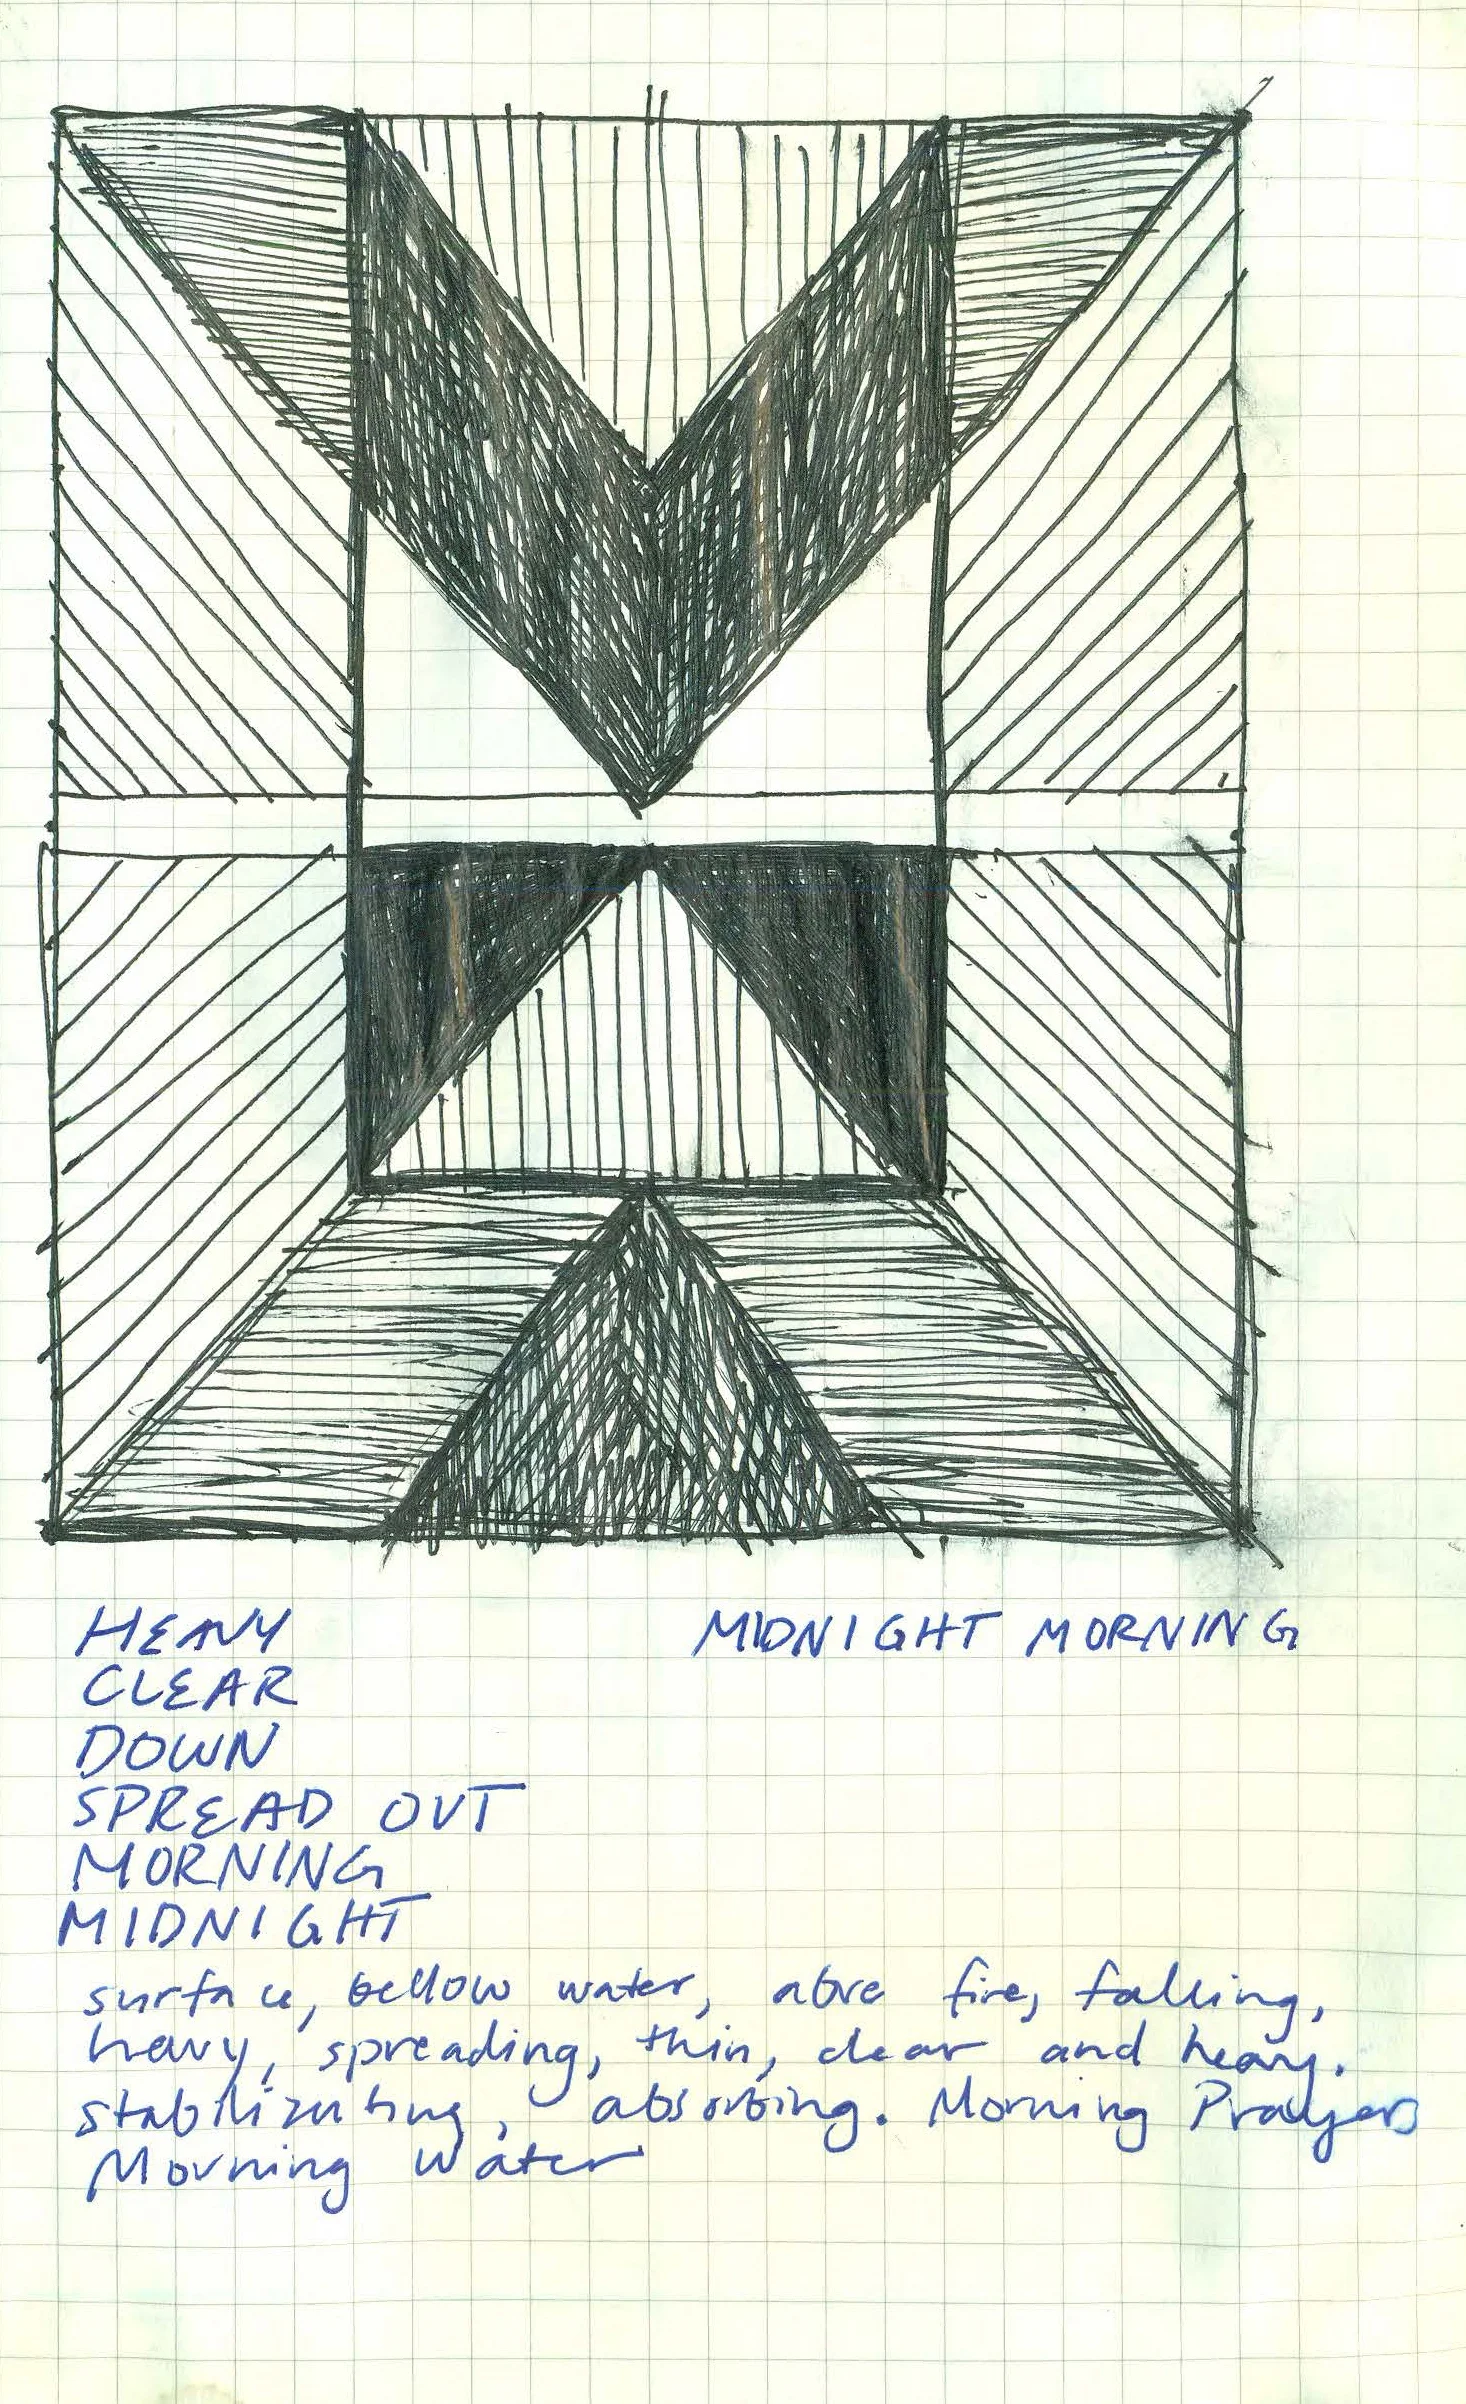 HEAVY
MIDNIGHT MORNING
CLEAR
DOWN
SPREAD OUT
MORNING
MIDNIGHT
surface, bellow water, above fire, falling,
heavy, spreading, thin, clear and heavy.
stabilizuting, absorbing. Morning Prayers
Morning Water